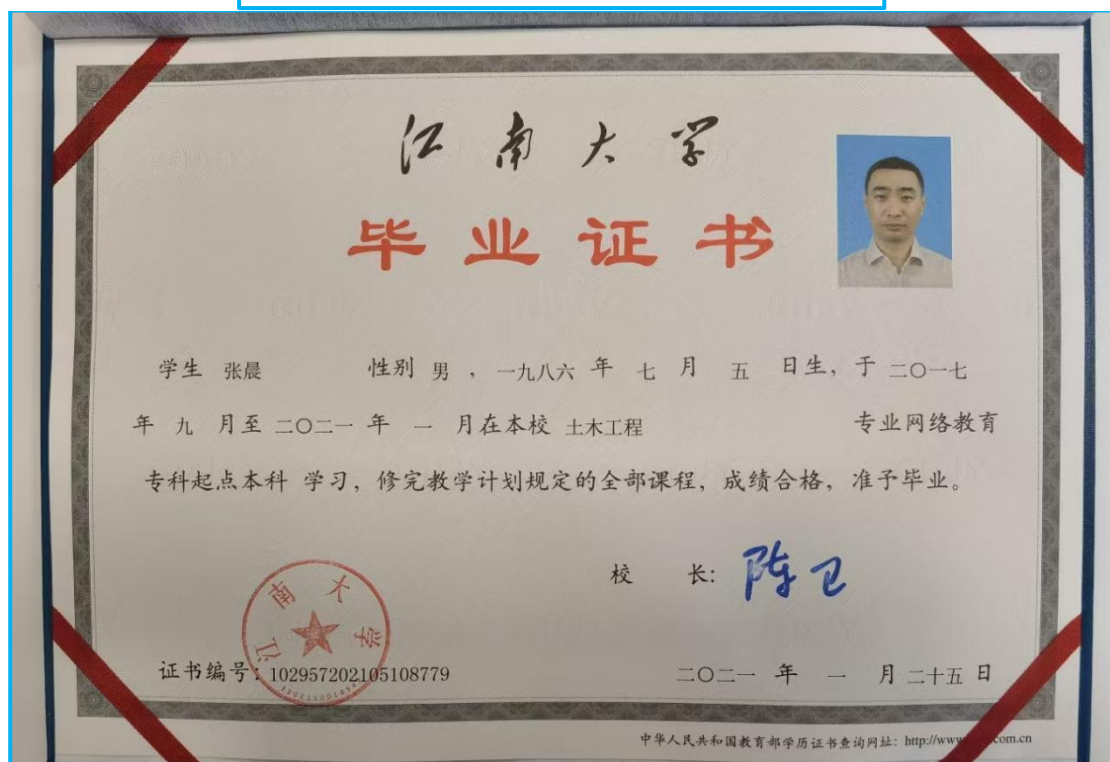 江南大学
毕业证书
学生 张晨 性别 男 ，一九八六 年 七 月 五 日生，于 二〇一七
年 九 月至 二〇二一 年 一 月在本校 土木工程 专业网络教育
专科起点本科 学习，修完教学计划规定的全部课程，成绩合格，准予毕业。
校 长：陈卫
江南大学
证书编号：102957202105108779 二〇二一 年 一 月 二十五 日
中华人民共和国教育部学历证书查询网址：http://www com.cn